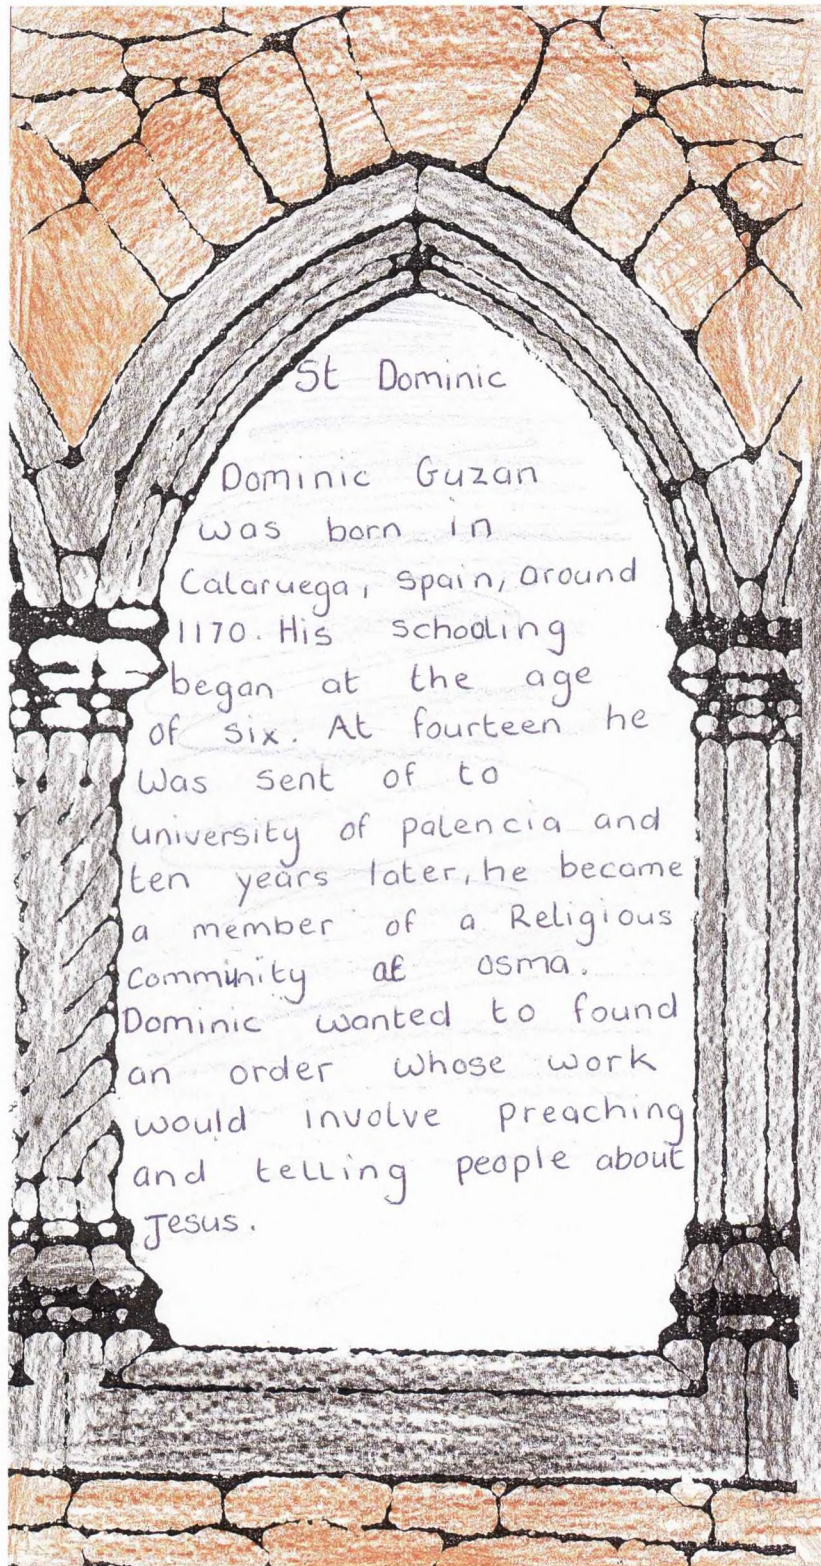 St Dominic
Dominic Guzan
was born in
Calaruega, Spain, around
1170. His schooling
began at the age
of six. At fourteen he
was sent of to
university of palencia and
ten years later, he became
a member of a Religious
Community at osma.
Dominic wanted to found
an order whose work
would involve preaching
and telling people about
Jesus.